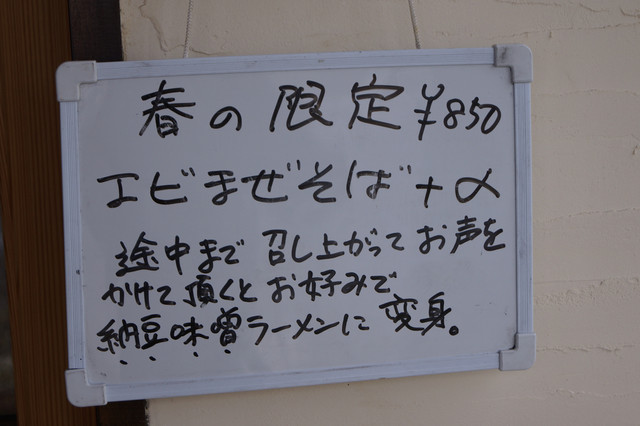 春の限定¥850
エビまぜそば+α
途中まで召し上がってお声を
かけて頂くとお好みで
納豆味噌ラーメンに変身。